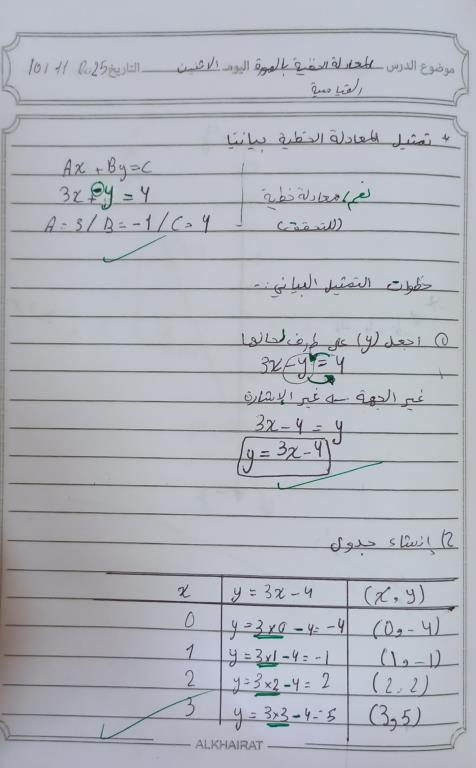 موضوع الدرس المعادلة الخطية بالصورة القياسية اليوم الاثنين التاريخ 10/11
* تمثيل المعادلة الخطية بيانيًا
Ax + By = C
نعم/ معادلة خطية 3x + -y = 4
(للتحقق) A = 3 / B = -1 / C = 4
خطوات التمثيل البياني:-
① اجعل (y) على طرف لحالها
3x - y = 4
غير الجهة → غير الإشارة
3x - 4 = y
y = 3x - 4
2) إنشاء جدول
x | y = 3x - 4 | (x, y)
0 | y = 3x0 - 4 = -4 | (0, -4)
1 | y = 3x1 - 4 = -1 | (1, -1)
2 | y = 3x2 - 4 = 2 | (2, 2)
3 | y = 3x3 - 4 = 5 | (3, 5)
ALKHAIRAT